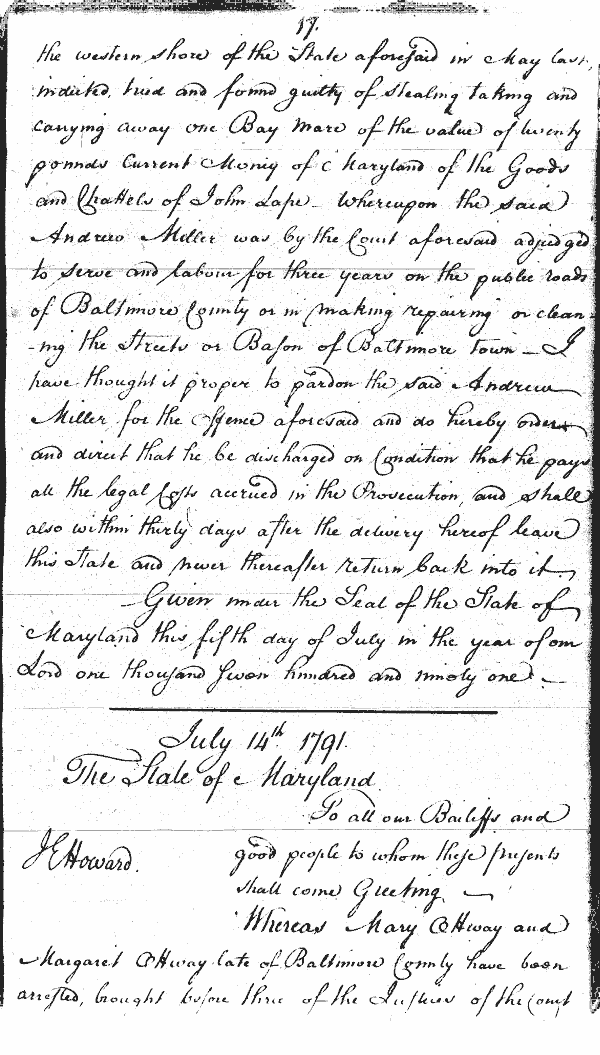 17.
the western shore of the State aforesaid in May last,
indicted, tried and found guilty of stealing taking and
carrying away one Bay Mare of the value of twenty
pounds Current Money of Maryland of the Goods
and Chattels of John Lape - Whereupon the said
Andrew Miller was by the Court aforesaid adjudged
to serve and labour for three years on the public roads
of Baltimore County or in making repairing or clean-
-ing the Streets or Bason of Baltimore town - I
have thought it proper to pardon the said Andrew
Miller for the Offence aforesaid and do hereby order
and direct that he be discharged on Condition that he pays
all the legal Costs accrued in the Prosecution, and shall
also within thirty days after the delivery hereof leave
this State and never thereafter return back into it
Given under the Seal of the State of
Maryland this fifth day of July in the year of our
Lord one thousand seven hundred and ninety one -
July 14th 1791.
The State of Maryland
To all our Bailiffs and
J E Howard. good people to whom these presents
shall come Greeting
Whereas Mary and
Margaret late of Baltimore County have been
arrested, brought before three of the Justices of the Court